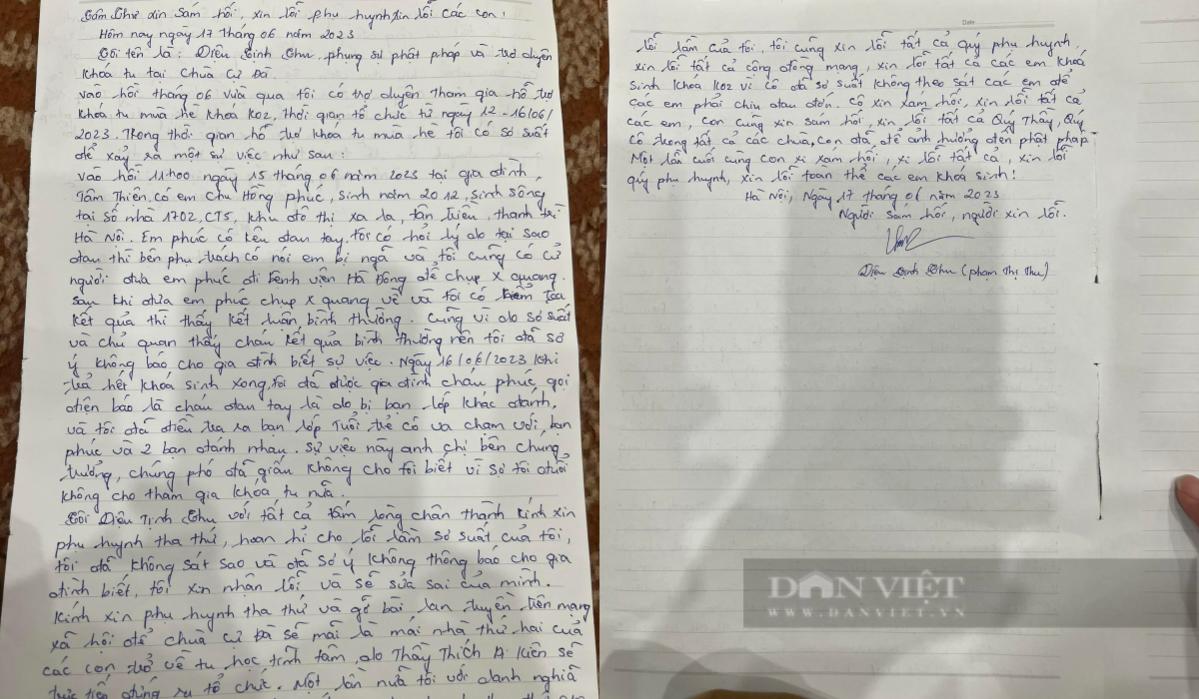 Tâm thư xin sám hối, xin lỗi phụ huynh xin lỗi các con!
Hôm nay ngày 17 tháng 06 năm 2023
Tôi tên là: Diệu Tịnh Thu, phụng sự phật pháp và trợ duyên
khoá tu tại chùa Cự Đà.
vào hồi tháng 06 vừa qua tôi có trợ duyên tham gia hỗ trợ
khoá tu mùa hè khoá K02, thời gian tổ chức từ ngày 12-16/06/
2023. Trong thời gian hỗ trợ khoá tu mùa hè tôi có sơ suất
để xảy ra một sự việc như sau:
vào hồi 11h00 ngày 15 tháng 06 năm 2023 tại gia đình,
Tâm Thiện, có em Chu Hồng phúc, sinh năm 2012, sinh sống
tại số nhà 1702, CT5, khu đô thị xa la, tân triều, thanh trì
Hà Nội. Em phúc có kêu đau tay, tôi có hỏi lý do tại sao
đau thì bên phụ trách có nói em bị ngã và tôi cũng có cử
người đưa em phúc đi bệnh viện Hà Đông để chụp x quang.
sau khi đưa em phúc chụp x quang về và tôi có kiểm tra
kết quả thì thấy kết luận bình thường. Cũng vì do sơ suất
và chủ quan thấy cháu kết quả bình thường nên tôi đã sơ
ý không báo cho gia đình biết sự việc. Ngày 16/06/2023 khi
trả hết khoá sinh xong, tôi đã được gia đình cháu phúc gọi
điện báo là cháu đau tay là do bị bạn lớp khác đánh,
và tôi đã điều tra ra bạn lớp Tuổi trẻ có va chạm với bạn
phúc và 2 bạn đánh nhau. Sự việc này anh chị bên chúng
trưởng, chúng phó đã giấu không cho tôi biết vì sợ tôi đuổi
không cho tham gia khoá tu nữa.
Tôi Diệu Tịnh Thu với tất cả tấm lòng chân thành kính xin
phụ huynh tha thứ, hoan hỉ cho lỗi lầm sơ suất của tôi,
tôi đã không sát sao và đã sơ ý không thông báo cho gia
đình biết, tôi xin nhận lỗi và sẽ sửa sai của mình.
Kính xin phụ huynh tha thứ và gỡ bài lan truyền trên mạng
xã hội để chùa cự đà sẽ mãi là mái nhà thứ hai của
các con trở về tu học tịnh tâm, do Thầy Thích Kiên sẽ
trực tiếp đứng ra tổ chức. Một lần nữa tôi với danh nghĩa
lỗi lầm của tôi, tôi cũng xin lỗi tất cả quý phụ huynh,
xin lỗi tất cả cộng đồng mạng, xin lỗi tất cả các em khoá
sinh khoá K02 vì cô đã sơ suất không theo sát các em để
các em phải chịu đau đớn. Cô xin xám hối, xin lỗi tất cả
các em, con cũng xin sám hối, xin lỗi tất cả Quý Thầy, Quý
Cô trong tất cả các chùa, con đã để ảnh hưởng đến phật pháp.
Một lần cuối cùng con xi xám hối, xi lỗi tất cả, xin lỗi
quý phụ huynh, xin lỗi toàn thể các em khoá sinh!
Hà Nội, Ngày 17 tháng 06 năm 2023
Người sám hối, người xin lỗi.
Diệu Tịnh Thu (phạm Thị Thu)
Date
DÂN VIỆT
WWW.DANVIET.VN